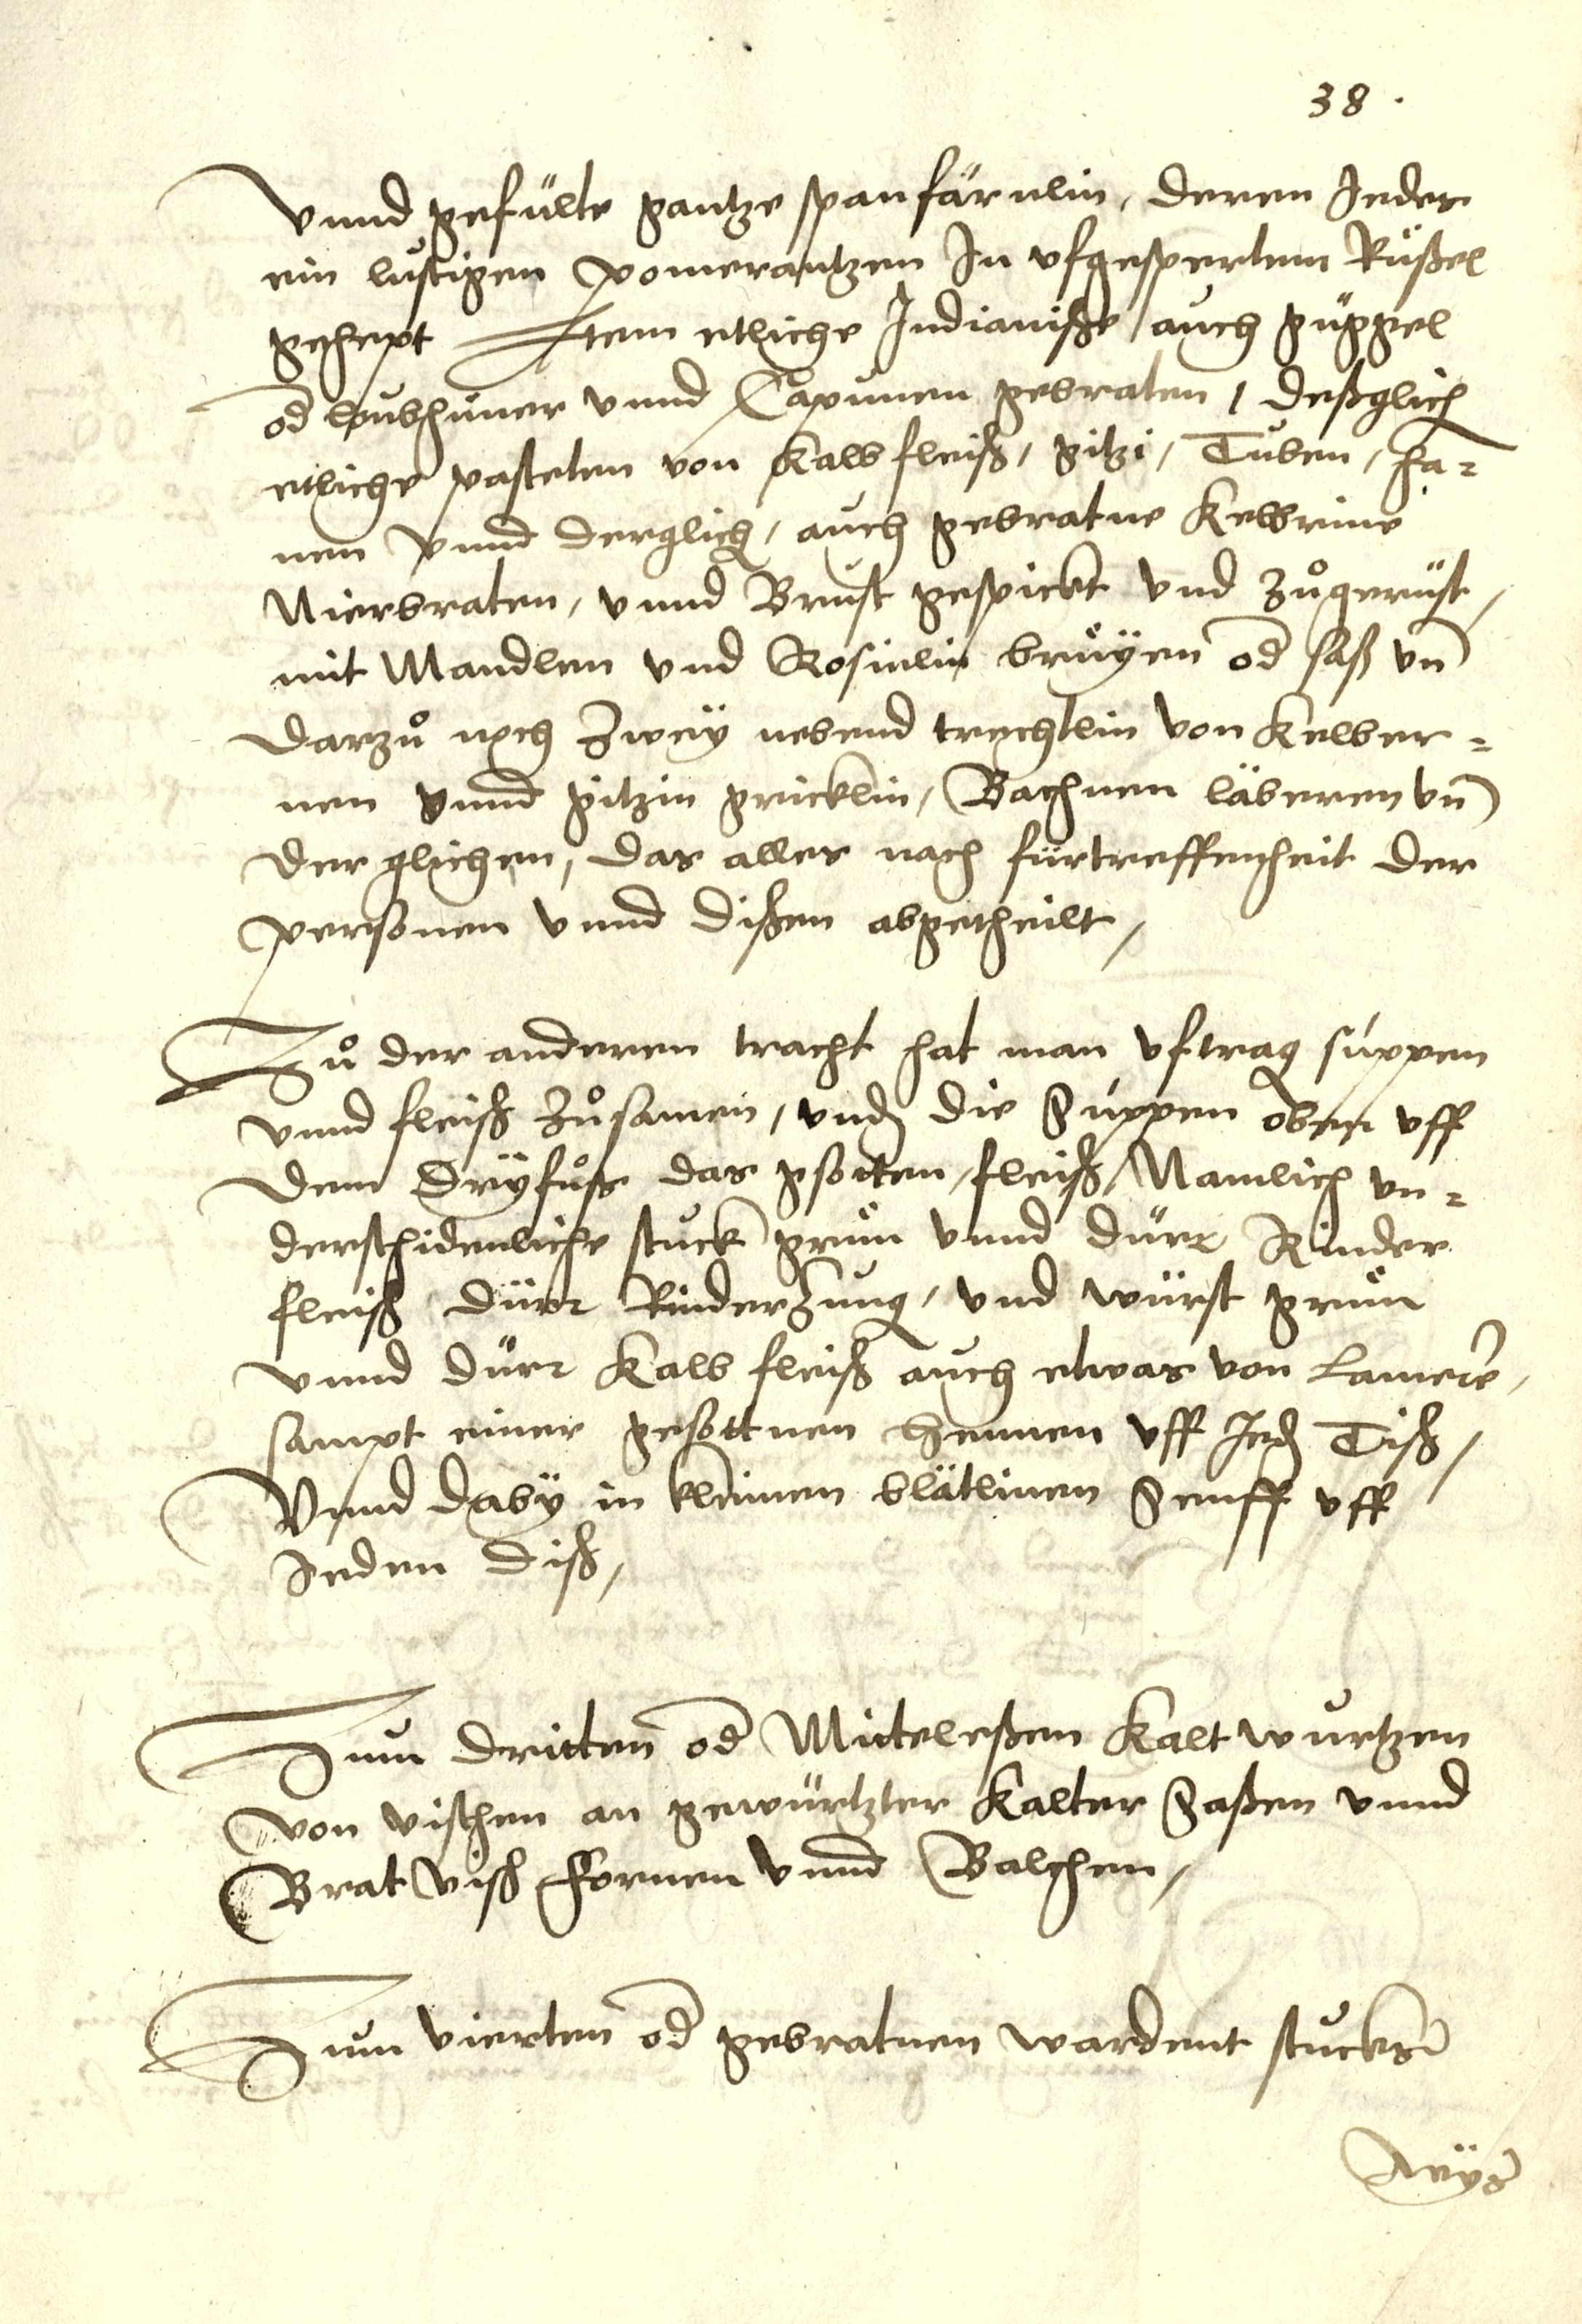 38.
Vnnd gefülte gantze spanfärnlin, deren Jedes
ein lustigen pomerantzen In vfgespertem Rüßel
gehept Item etliche Indianiße / auch güggel
od loubhüner vnnd Capunen gebraten / deßglich
etliche pasteten von Kalb fleiß, gitzi, Tuben, ha=
nen vnnd derglich, auch gebratne Kelbrine
Nierbraten, vnnd Brust gespickt vnd zůgerüst,
mit Mandlen vnd Rosinlin brüyen od saß vn̄
darzů noch Zwey nebend trechtlin von Kelber=
nen vnnd gitzin gricklin, Bachnen läberen vn̄
der glichen, das alles nach fürtreffenheit der
personen vnnd dißen abgetheilt,
Zů der anderen tracht hat man vftrag suppen
vnnd fleiß zůsamen, vnd die Suppen oben vff
dem Dryfůß das gsotten fleiß, Namlich vn=
derschidenliche stuck grün vnnd dürr Rinder
fleiß dürr Rinderzung, vnd würst grün
vnnd dürr Kalb fleiß auch etwas von Lamere,
sampt einer gesottnen Hennen vff Jed Tiß,
Vnnd daby in kleinen blätlinen Senff vff
Jeden diß,
Zum dritten od Mitteleßen Kalt wurtzen
von vischen an gewürtzter Kalter Saßen vnnd
Brat Viß Fornen vnnd Balchen,
Zum vierten od gebratnen wardent stucks
wyß